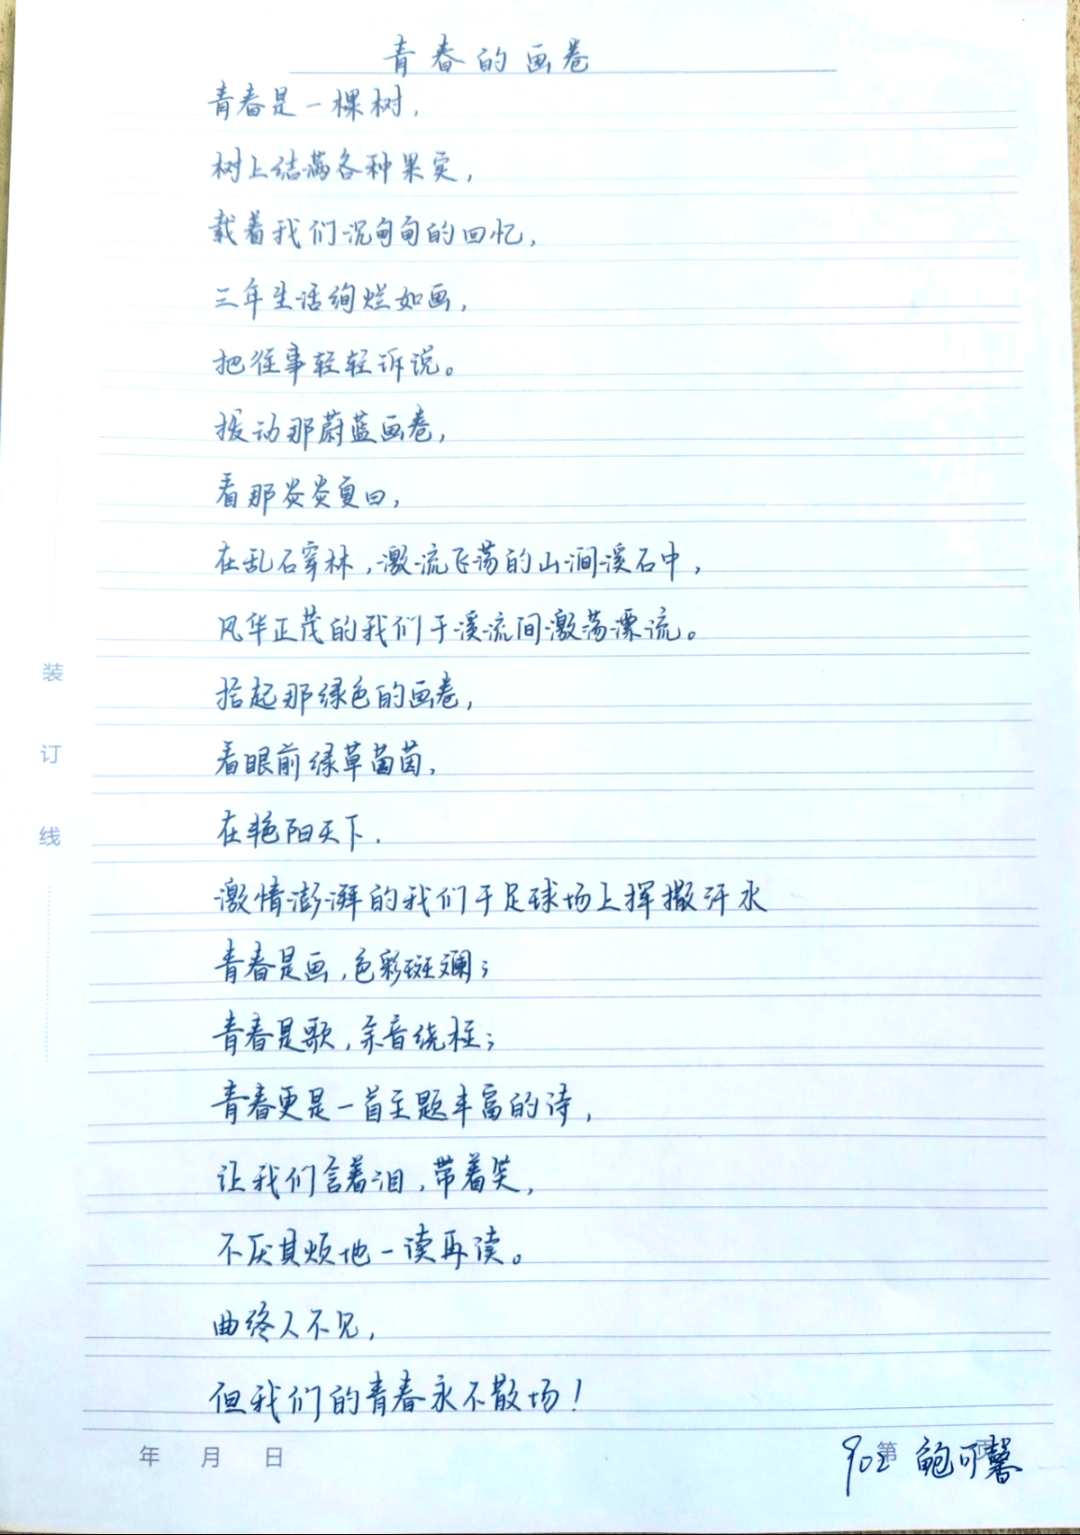 青春的画卷
青春是一棵树，
树上结满各种果实，
载着我们沉甸甸的回忆，
三年生活绚烂如画，
把往事轻轻诉说。
拨动那蔚蓝画卷，
看那炎炎夏日，
在乱石穿林，激流飞荡的山涧溪石中，
风华正茂的我们于溪流间激荡漂流。
拾起那绿色的画卷，
看眼前绿草茵茵，
在艳阳天下.
激情澎湃的我们于足球场上挥撒汗水
青春是画，色彩斑斓；
青春是歌，余音绕柱；
青春更是一首主题丰富的诗，
让我们含着泪，带着笑，
不厌其烦地一读再读。
曲终人不见，
但我们的青春永不散场！
装
订
线
年 月 日
第 页
902 鲍可馨